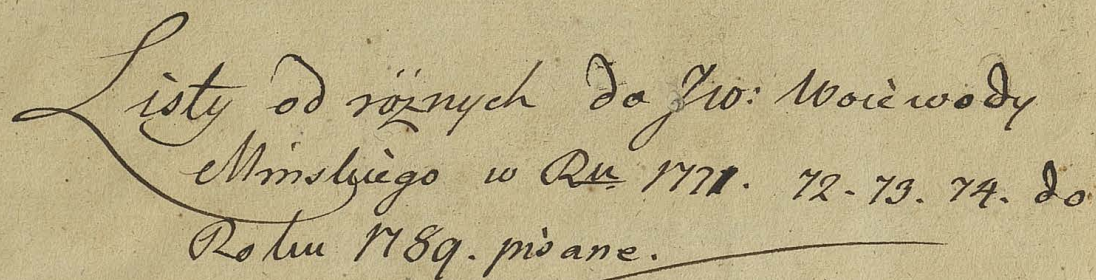 Listy od różnych do Jw: Woiewody
Minskiego w Ru 1771. 72. 73. 74. do
Roku 1789. pisane.